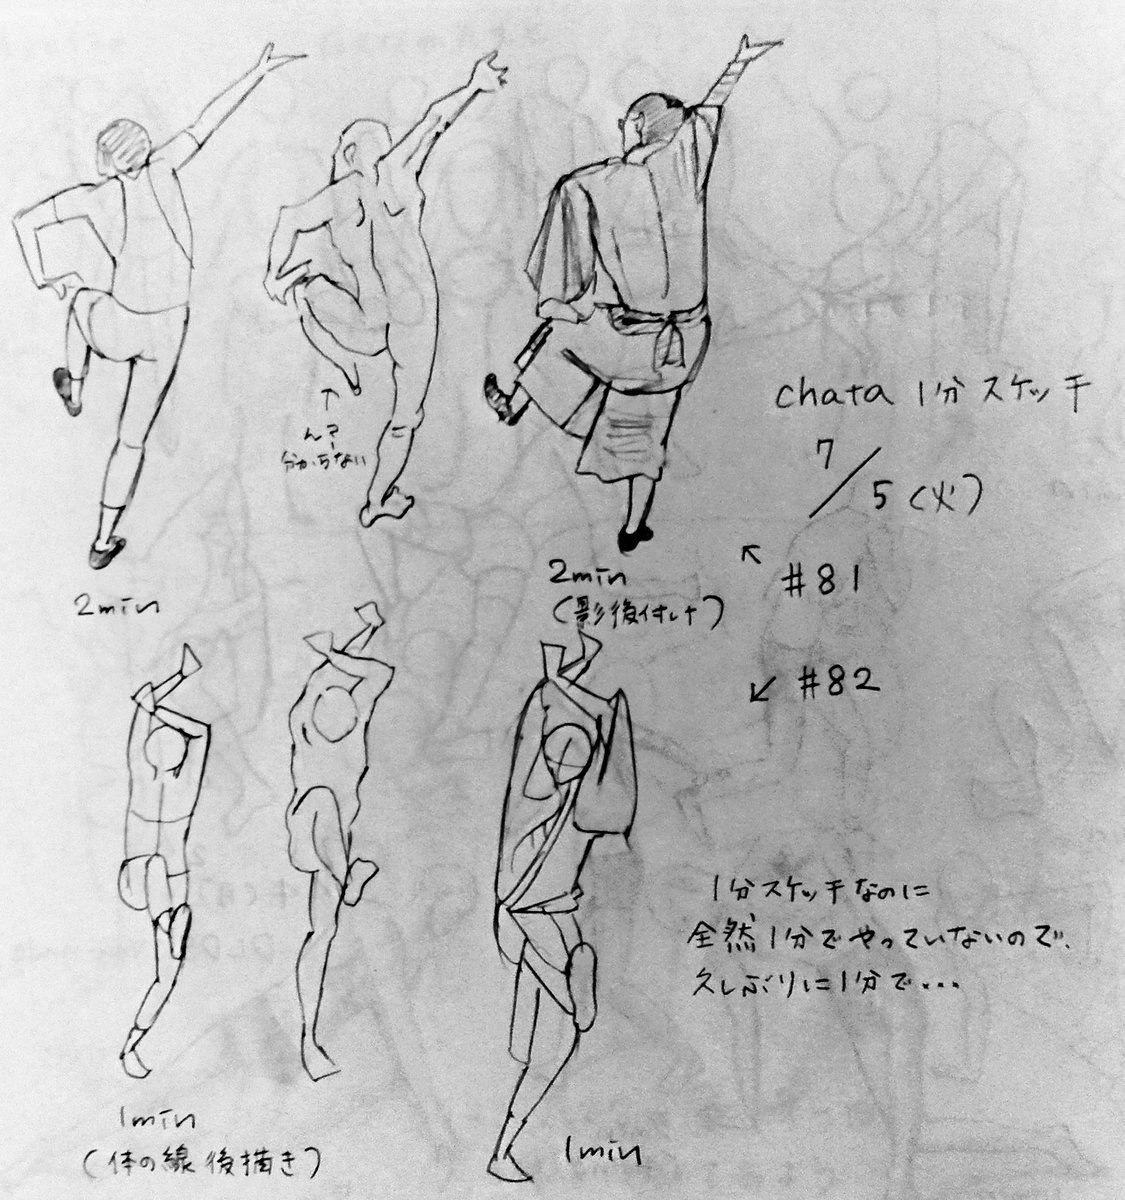 chata 1分スケッチ
7/5(火)
↑
ん?
分からない
2min
2min
(影後付け)
↖ #81
↙ #82
1分スケッチなのに
全然1分でやっていないので、
久しぶりに1分で...
1min
(体の線後描き)
1min